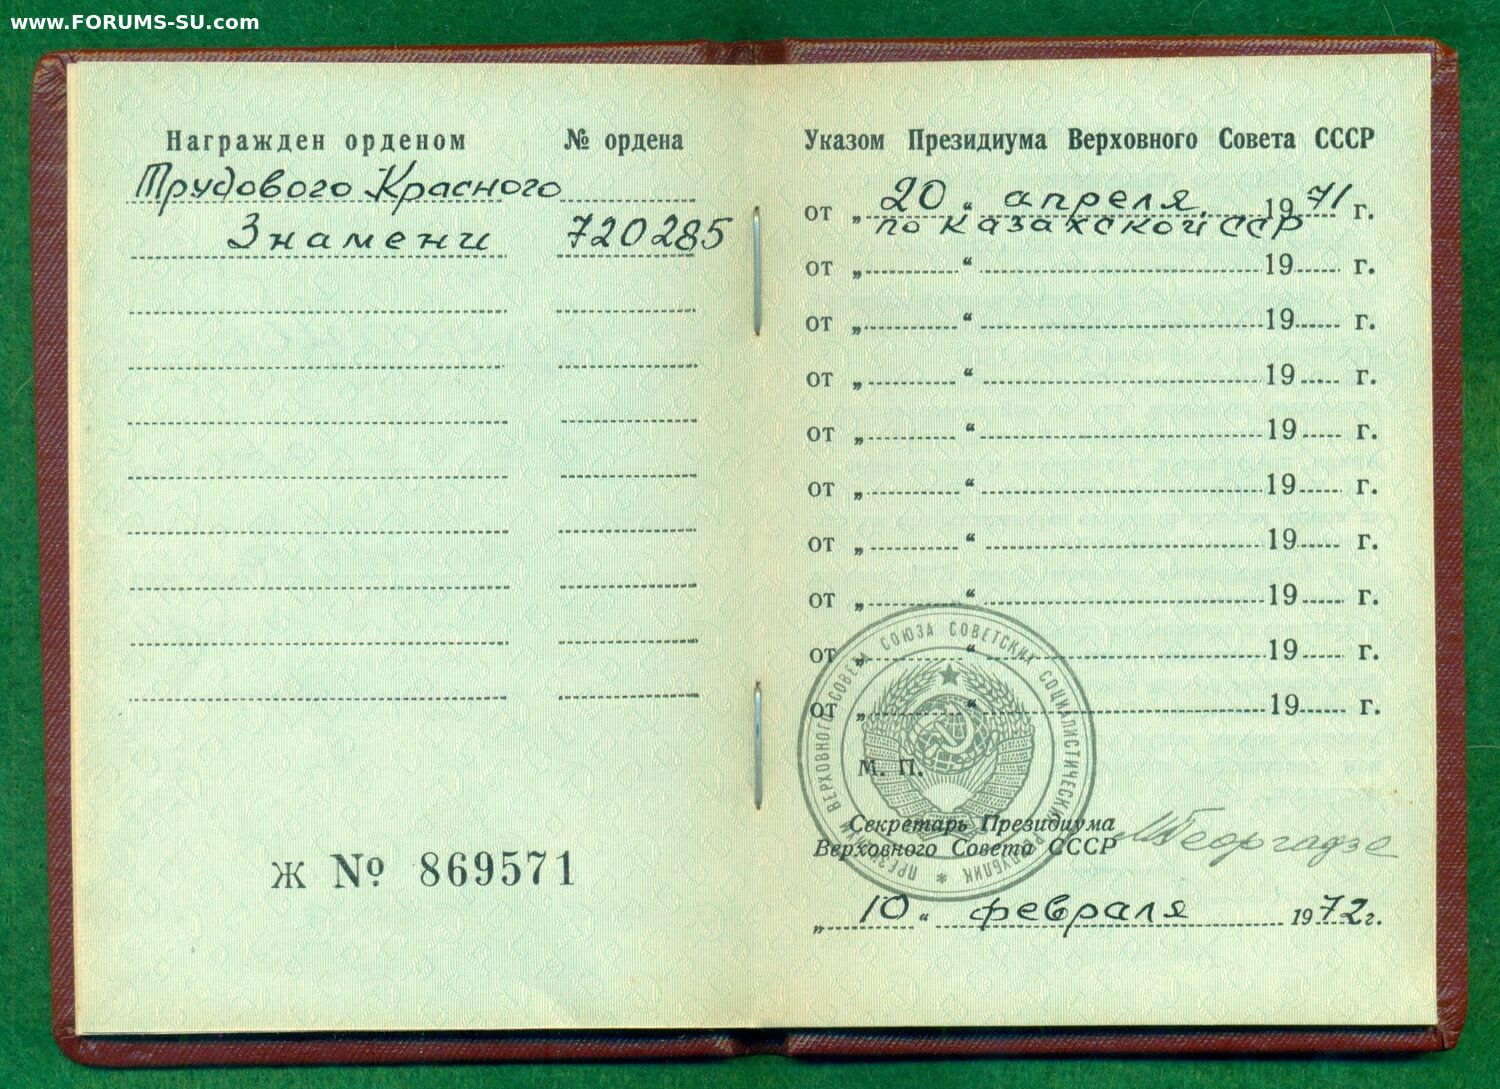 www.FORUMS-SU.com
Награжден орденом № ордена
Трудового Красного
Знамени 720285
Ж № 869571
Указом Президиума Верховного Совета СССР
от „ 20 “ апреля 1971 г.
по Казахской ССР
от „ “ 19 г.
от „ “ 19 г.
от „ “ 19 г.
от „ “ 19 г.
от „ “ 19 г.
от „ “ 19 г.
от „ “ 19 г.
от „ “ 19 г.
от „ “ 19 г.
ПРЕЗИДИУМ ВЕРХОВНОГО СОВЕТА СОЮЗА СОВЕТСКИХ СОЦИАЛИСТИЧЕСКИХ РЕСПУБЛИК *
М. П.
Секретарь Президиума
Верховного Совета СССР МГеоргадзе
„ 10 “ февраля 1972 г.